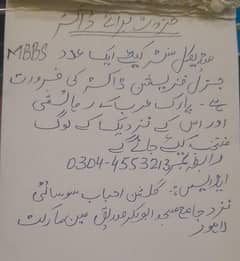 ضرورت برائے ڈاکٹر
میڈیکل سنٹر کیلئے ایک عدد MBBS
جنرل فزیشن ڈاکٹر کی ضرورت
ہے۔ پارک عرب کے رہائشی
اور اس کے نزدیک کے لوگ
منتخب کیئے جائے گے
رابطہ نمبر 0304-4553213
ایڈریس: گلشن احباب سوسائٹی
نزد جامع مسجد ابوبکر صدیق مین مارکیٹ
لاہور